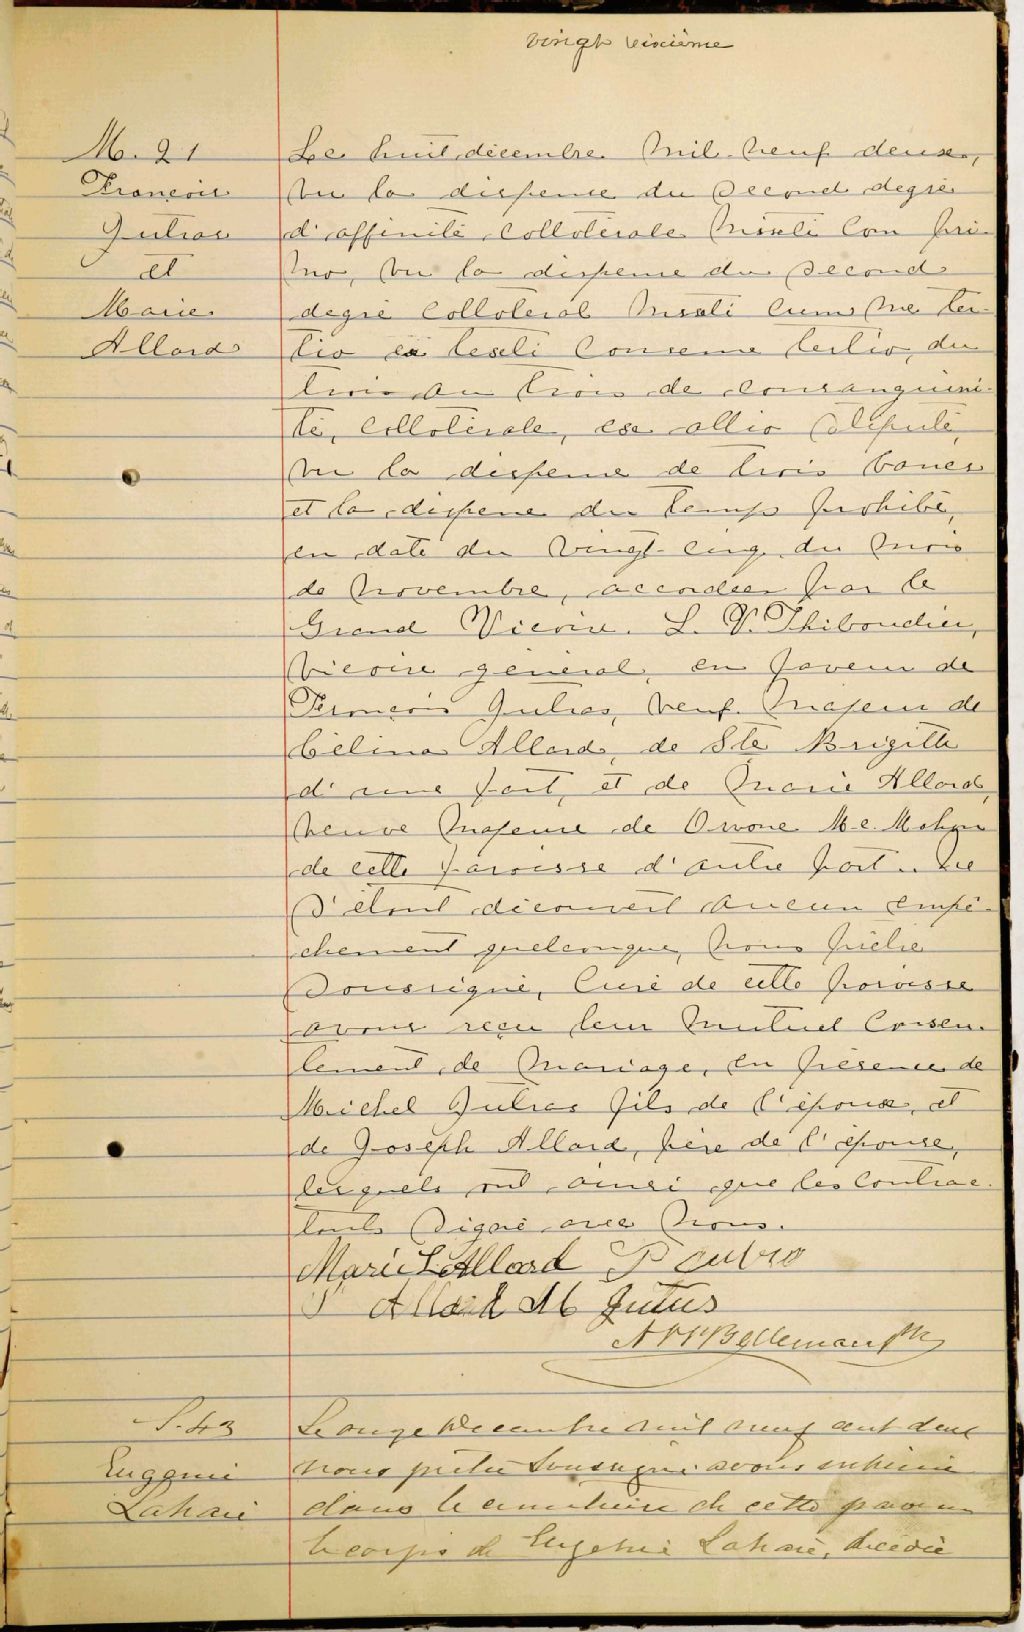 vingt sixième
M. 21
François
Jutras
et
Marie
Allard
Le huit décembre mil neuf deux,
vu la dispense du second degré
d'affinité collatérale mixti con pri-
mo, vu la dispense du second
degré collateral mixti cum ter-
tio du
trois au trois de consanguini-
té, collatérale, ex allio stipite,
vu la dispense de trois bancs
et la dispense du temps prohibé,
en date du vingt-cinq du mois
de novembre, accordées par le
Grand Vicaire. L. V. Thibaudier,
vicaire général, en faveur de
François Jutras, veuf majeur de
Célina Allard, de Ste Brigitte
d'une part, et de Marie Allard,
veuve majeure de Mc. Mahon
de cette paroisse d'autre part. Ne
s'étant découvert aucun empê-
chement quelconque, nous prêtre
soussigné, Curé de cette paroisse
avons reçu leur mutuel consen-
tement de mariage, en présence de
Michel Jutras fils de l'époux, et
de Joseph Allard, père de l'épouse,
lesquels ont ainsi que les contrac-
tants signé avec nous.
Marie L Allard
Allard M Jutras
Bellemare Ptre
S. 43
Eugénie
Lahaie
Le onze Decembre mil neuf cent deux
nous prêtre soussigné avons inhumé
dans le cimetière de cette paroisse
le corps de Eugénie Lahaie, décédée